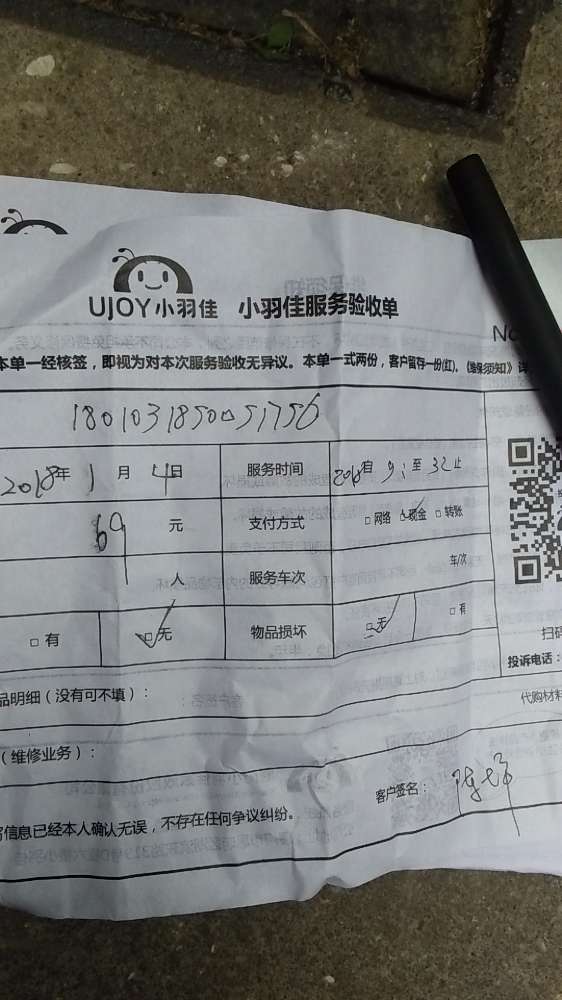 UJOY小羽佳 小羽佳服务验收单
No
本单一经核签，即视为对本次服务验收无异议。本单一式两份，客户留存一份(红)。《维保须知》详
1801031850051756
2018年 1 月 4日 服务时间 自 9: 至 32止
69 元 支付方式 □网络 ☑现金 □转账
人 服务车次 车/次
□有 ☑无 物品损坏 ☑无 □有
扫码
投诉电话：
品明细（没有可不填）： 代购材料
（维修业务）：
客户签名：
写信息已经本人确认无误，不存在任何争议纠纷。